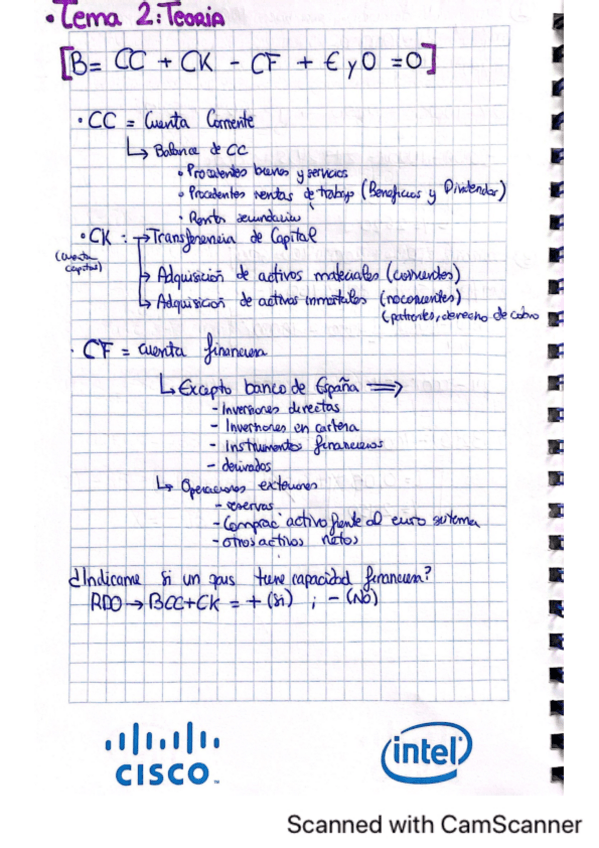 • Tema 2: Teoria
[B = CC + CK - CF + E y O = 0]
• CC = Cuenta Corriente
↳ Balance de CC
• Procedentes bienes y servicios
• Procedentes rentas de trabajo (Beneficios y Dividendos)
• Renta secundaria
• CK : → Transferencia de Capital
(cuenta capital)
↳ Adquisición de activos materiales (corrientes)
↳ Adquisicion de activos inmateriales (no corrientes)
(patentes, derecho de cobro
• CF = cuenta financiera
↳ Excepto banco de España ⇒
- Inversiones directas
- Inversiones en cartera
- Instrumentos financieros
- derivados
↳ Operaciones exteriores
- reservas
- Comprac activo frente al euro sistema
- otros activos netos
¿Indicame si un pais tiene capacidad financiera?
RDO → BCC+CK = + (si) ; - (No)
CISCO
intel
Scanned with CamScanner